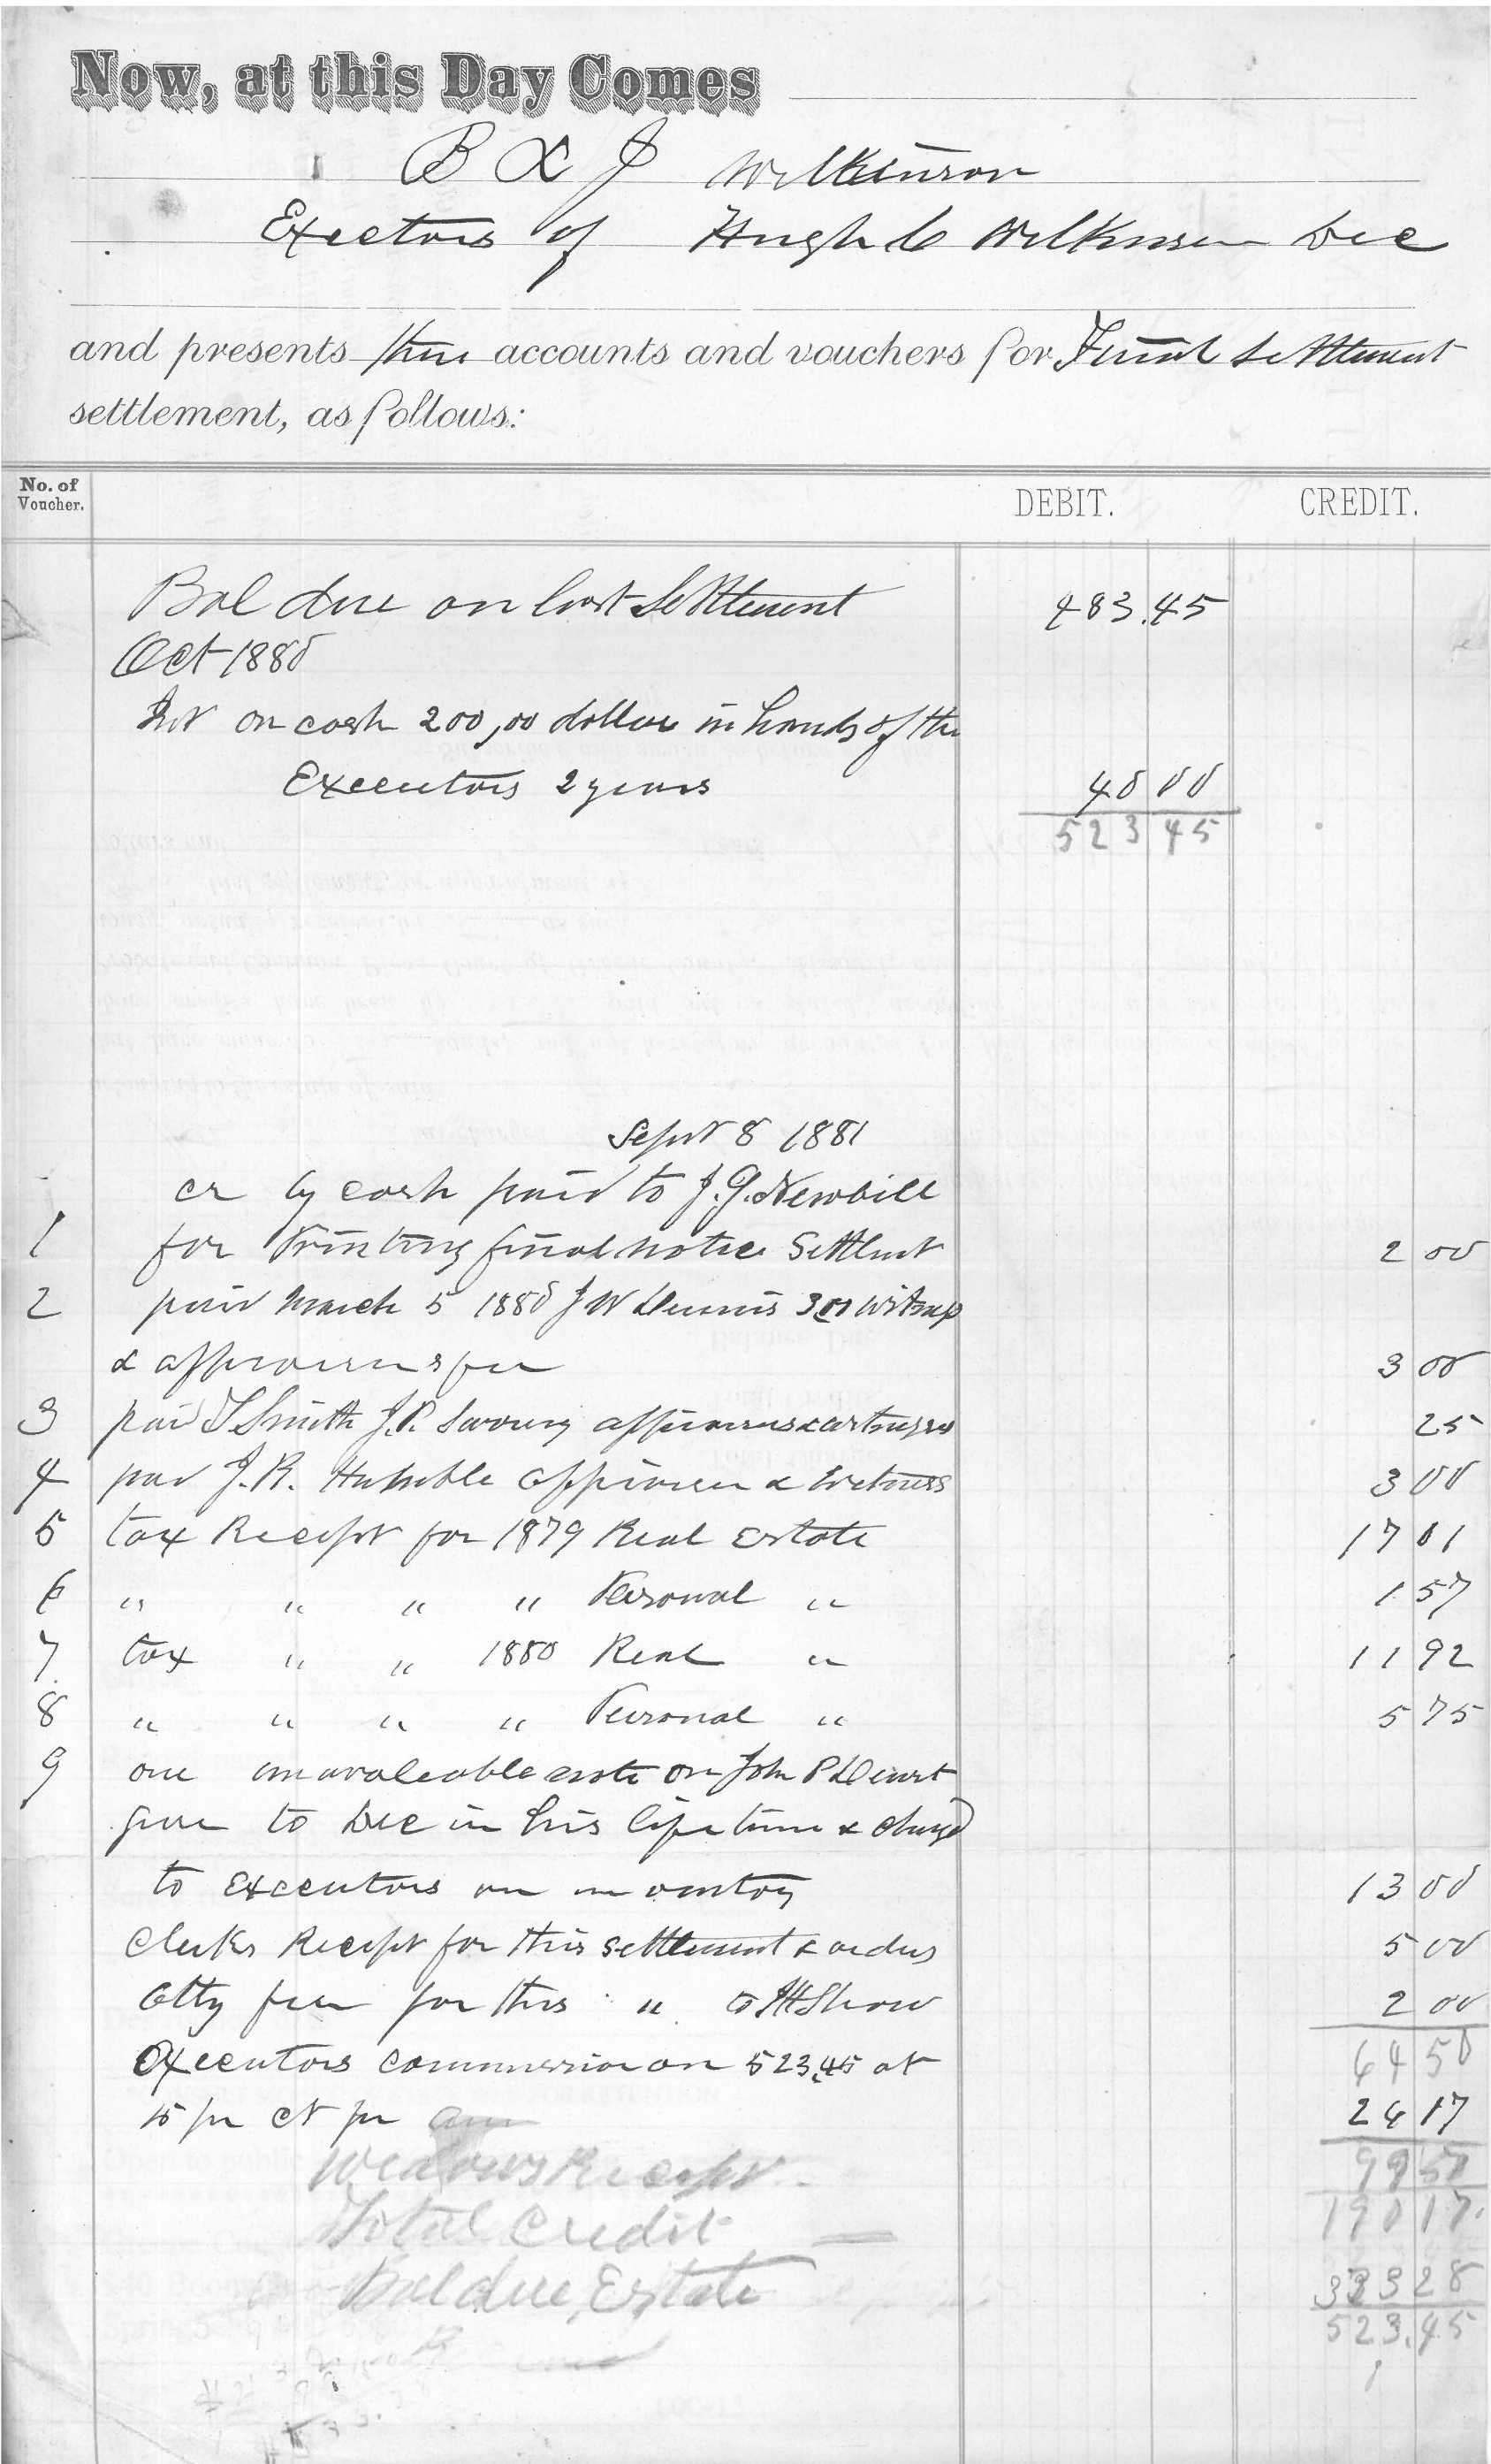 Now, at this Day Comes
B & J Wilkinson
Exectors of Hugh C Wilkinson Dec
and presents their accounts and vouchers for Final Settlement
settlement, as follows:
No. of Voucher. DEBIT. CREDIT.
Bal due on last Settlement 483.45
Oct 1880
Int on cash 200,00 dollars in hands of the
Executors 2 years 40 00
523 45
Sept 8 1881
cr by cash paid to J.G. Newbill
1 for Printing final notice Settlmt 2 00
2 paid March 5 1880 J W Dennis 3.00 
& appraisers fee 3 00
3 paid T Smith J.P. Sworing appraisers & witnesses 25
4 paid J.R. Humble appraiser & Witness 3 00
5 tax Receipt for 1879 Real Estate 17 01
6 " " " " Personal " 1 57
7 tax " " 1880 Real " 11 92
8 " " " " Personal " 5 75
9 one unavaleable note on John P
give to Dec in his life time & charged
to Executors on inventory 13 00
Clerks Receipt for this settlement & orders 5 00
Atty fee for this " to 2 00
64 50
Executors commission on 523.45 at
5 pr ct pr ann 26 17
Widows Receipt 99 50
Total Credit 190 17
Bal due Estate 333 28
523.45